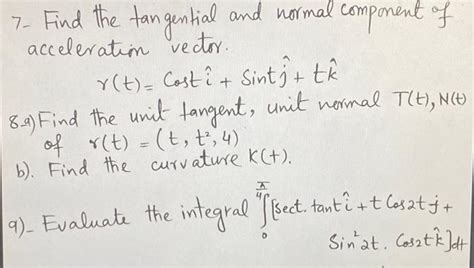 7- Find the tangential and normal component of
acceleration vector.
r(t) = Cost î + Sint ĵ + t k̂
8-a) Find the unit tangent, unit normal T(t), N(t)
of r(t) = (t, t², 4)
b). Find the curvature K(t).
9)- Evaluate the integral ∫₀^(π/4) [sect. tant î + t Cos2t j +
Sin²2t. Cos2t k̂] dt